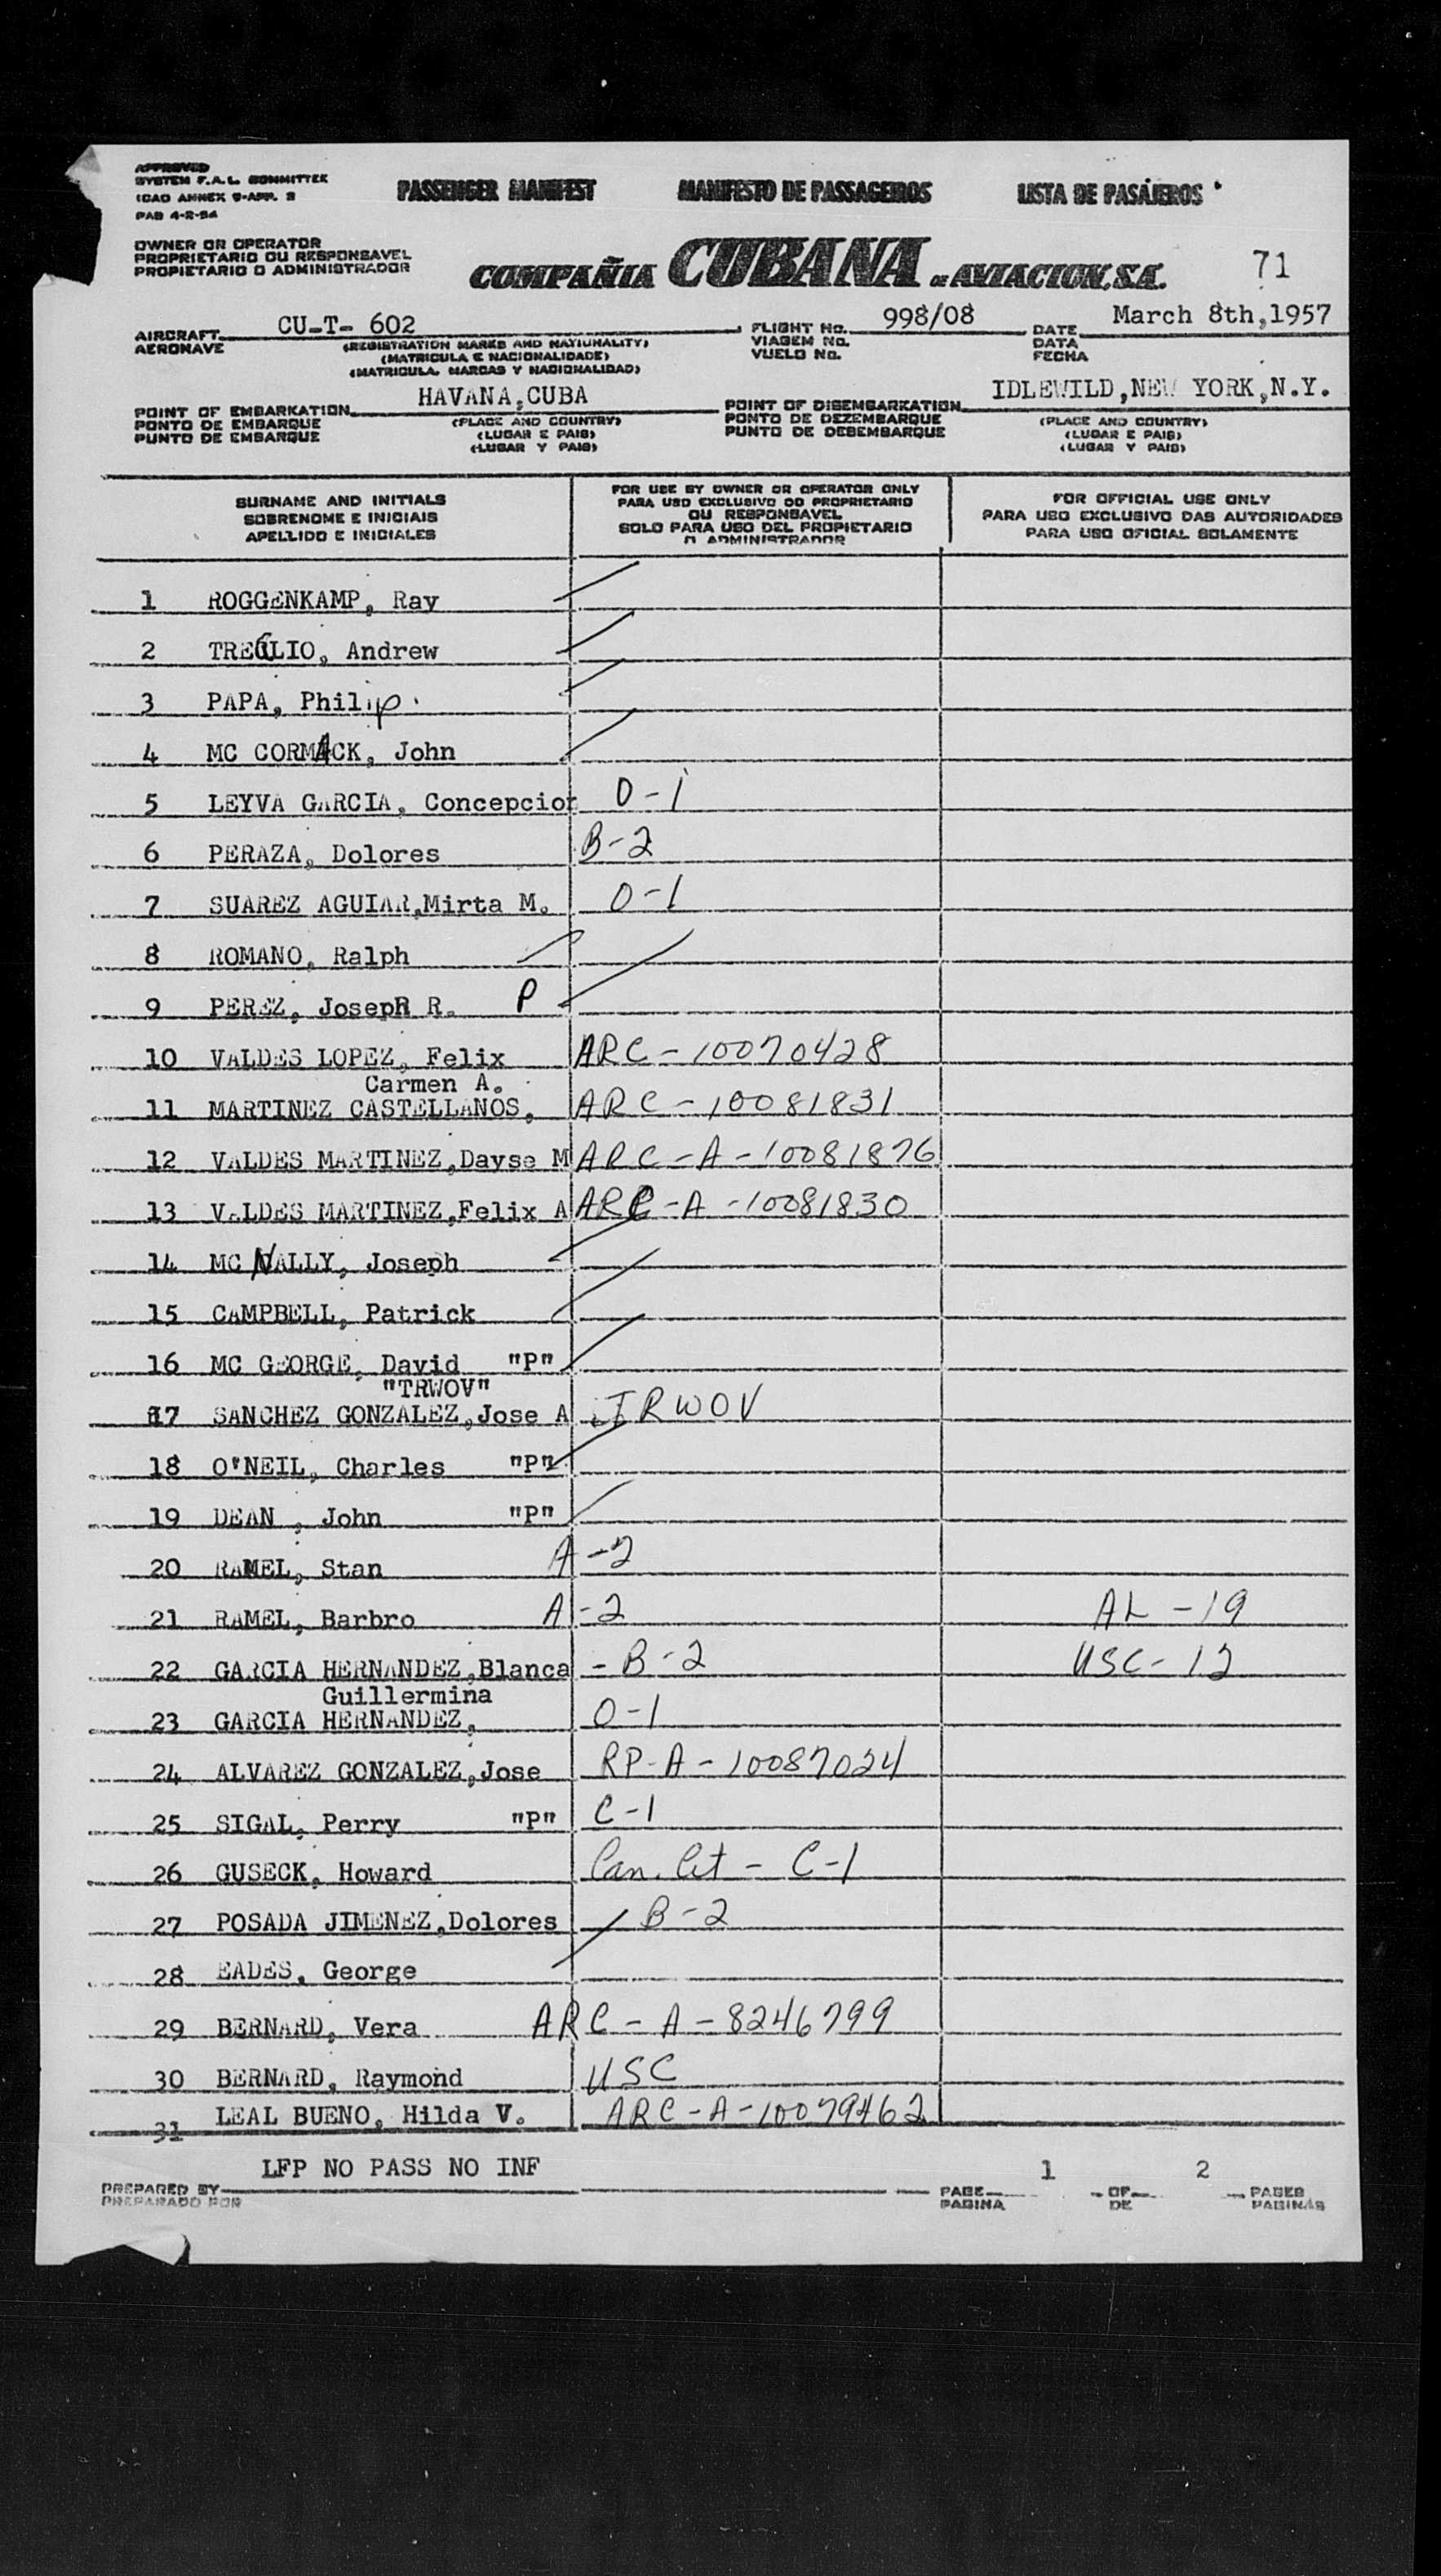 APPROVED
SYSTEM F.A.L. COMMITTEE
ICAO ANNEX 9-APP. 3
PAB 4-2-54
PASSENGER MANIFEST MANIFESTO DE PASSAGEIROS LISTA DE PASAJEROS
OWNER OR OPERATOR
PROPRIETARIO OU RESPONSAVEL
PROPIETARIO O ADMINISTRADOR
COMPAÑIA CUBANA DE AVIACION, S.A. 71
AIRCRAFT CU-T- 602 FLIGHT No. 998/08 DATE March 8th,1957
AERONAVE (REGISTRATION MARKS AND NATIONALITY) VIAGEM No. DATA
(MATRICULA E NACIONALIDADE) VUELO No. FECHA
(MATRICULA, MARCAS Y NACIONALIDAD)
POINT OF EMBARKATION HAVANA,CUBA POINT OF DISEMBARKATION IDLEWILD,NEW YORK,N.Y.
PONTO DE EMBARQUE (PLACE AND COUNTRY) PONTO DE DEZEMBARQUE (PLACE AND COUNTRY)
PUNTO DE EMBARQUE (LUGAR E PAIS) PUNTO DE DESEMBARQUE (LUGAR E PAIS)
(LUGAR Y PAIS) (LUGAR Y PAIS)
SURNAME AND INITIALS
SOBRENOME E INICIAIS
APELLIDO E INICIALES
FOR USE BY OWNER OR OPERATOR ONLY
PARA USO EXCLUSIVO DO PROPRIETARIO
OU RESPONSAVEL
SOLO PARA USO DEL PROPIETARIO
O ADMINISTRADOR
FOR OFFICIAL USE ONLY
PARA USO EXCLUSIVO DAS AUTORIDADES
PARA USO OFICIAL SOLAMENTE
1 ROGGENKAMP, Ray
2 TREGLIO, Andrew
3 PAPA, Philip
4 MC CORMACK, John
5 LEYVA GARCIA, Concepcion O-1
6 PERAZA, Dolores B-2
7 SUAREZ AGUIAR,Mirta M. O-1
8 ROMANO, Ralph
9 PEREZ, Joseph R. P
10 VALDES LOPEZ, Felix ARC-10070428
Carmen A.
11 MARTINEZ CASTELLANOS, ARC-10081831
12 VALDES MARTINEZ,Dayse M ARC-A-10081876
13 VALDES MARTINEZ,Felix A ARC-A-10081830
14 MC NALLY, Joseph
15 CAMPBELL, Patrick
16 MC GEORGE, David "P"
"TRWOV"
17 SANCHEZ GONZALEZ,Jose A TRWOV
18 O'NEIL, Charles "P"
19 DEAN , John "P"
20 RAMEL, Stan A-2
21 RAMEL, Barbro A-2 AL-19
22 GARCIA HERNANDEZ,Blanca - B-2 USC-12
Guillermina
23 GARCIA HERNANDEZ, O-1
24 ALVAREZ GONZALEZ,Jose RP-A-10087024
25 SIGAL, Perry "P" C-1
26 GUSECK, Howard Can. Cit - C-1
27 POSADA JIMENEZ,Dolores B-2
28 EADES, George
29 BERNARD, Vera ARC-A-8246799
30 BERNARD, Raymond USC
31 LEAL BUENO, Hilda V. ARC-A-10079462
LFP NO PASS NO INF 1 2
PREPARED BY PAGE OF PAGES
PREPARADO POR PAGINA DE PAGINAS